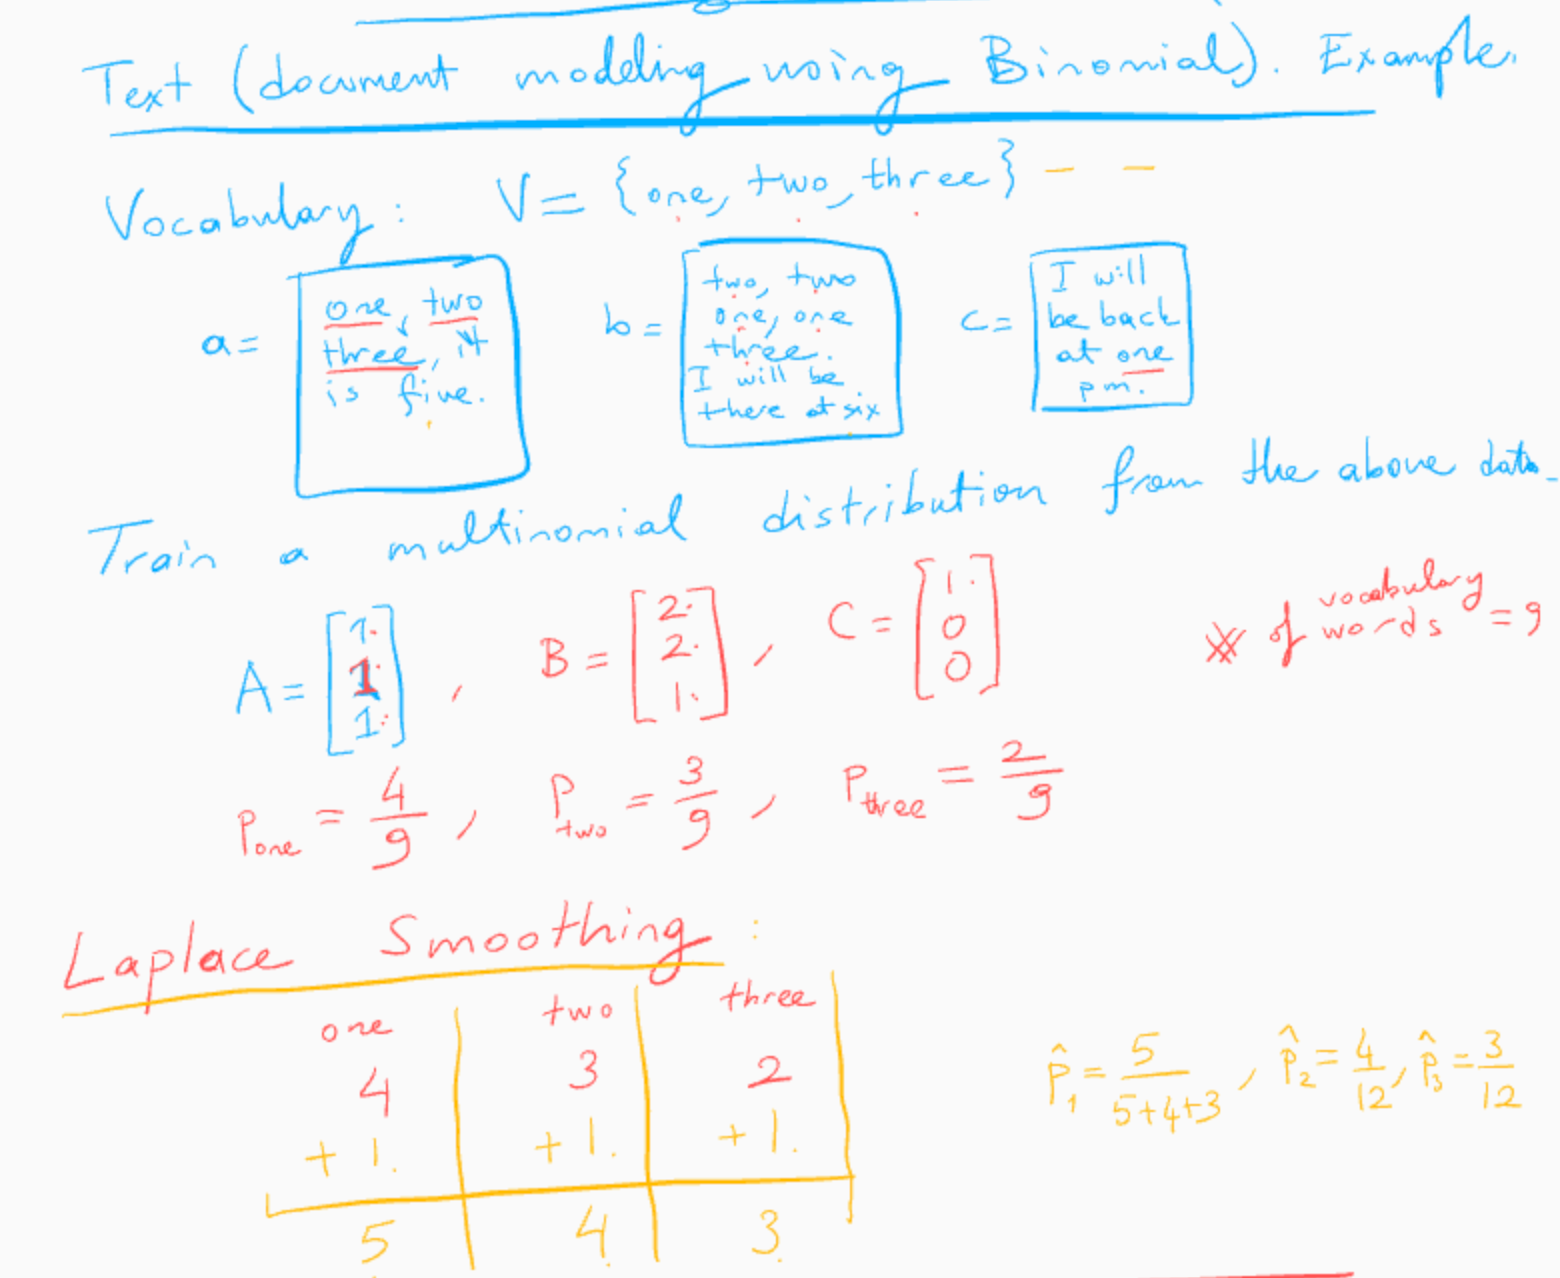 Text (document modeling using Binomial). Example.
Vocabulary: V = {one, two, three} - -
a =
one, two
three, it
is five.
b =
two, two
one, one
three.
I will be
there at six
c =
I will
be back
at one
pm.
Train a multinomial distribution from the above data.
A = [1. 1. 1.], B = [2. 2. 1.], C = [1. 0 0]
# of vocabulary words = 9
Pone = 4/9, Ptwo = 3/9, Pthree = 2/9
Laplace Smoothing:
one two three
4 3 2
+ 1. + 1. + 1.
5 4 3
p̂1 = 5/(5+4+3), p̂2 = 4/12, p̂3 = 3/12